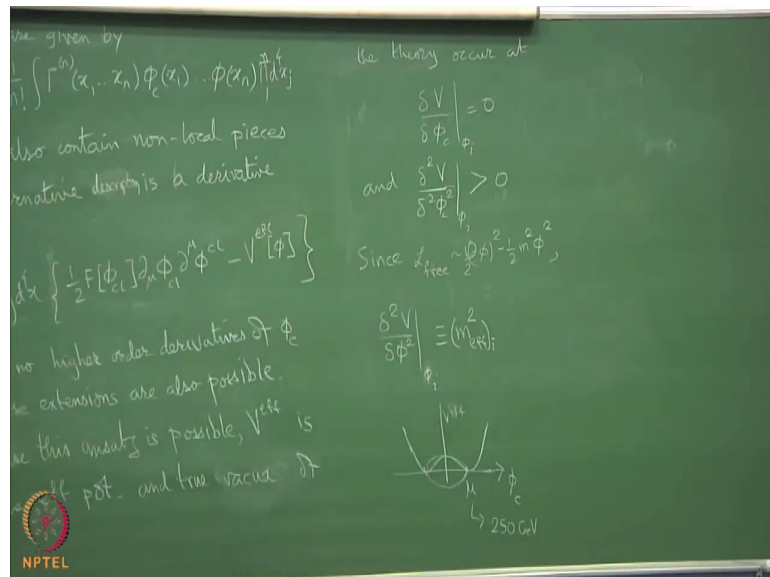 are given by
1/n! ∫ Γ^(n)(x_1...x_n) φ_c(x_1)...φ(x_n) ∏_1^n d^4x_j
also contain non-local pieces
ernative description is a derivative
d^4x { 1/2 F[φ_cl] ∂_μ φ_cl ∂^μ φ^cl − V^eff[φ] }
no higher order derivatives of φ_c
extensions are also possible.
this ansatz is possible, V^eff is
eff pot. and true vacua of
the theory occur at
δV/δφ_c |_φ_i = 0
and δ^2V/δ^2φ_c^2 |_φ_i > 0
Since L_free ~ 1/2(∂φ)^2 − 1/2 m^2 φ^2,
δ^2V/δφ^2 |_φ_i ≡ (m^2_eff)_i
V^eff
μ
φ_c
↳ 250 GeV
NPTEL